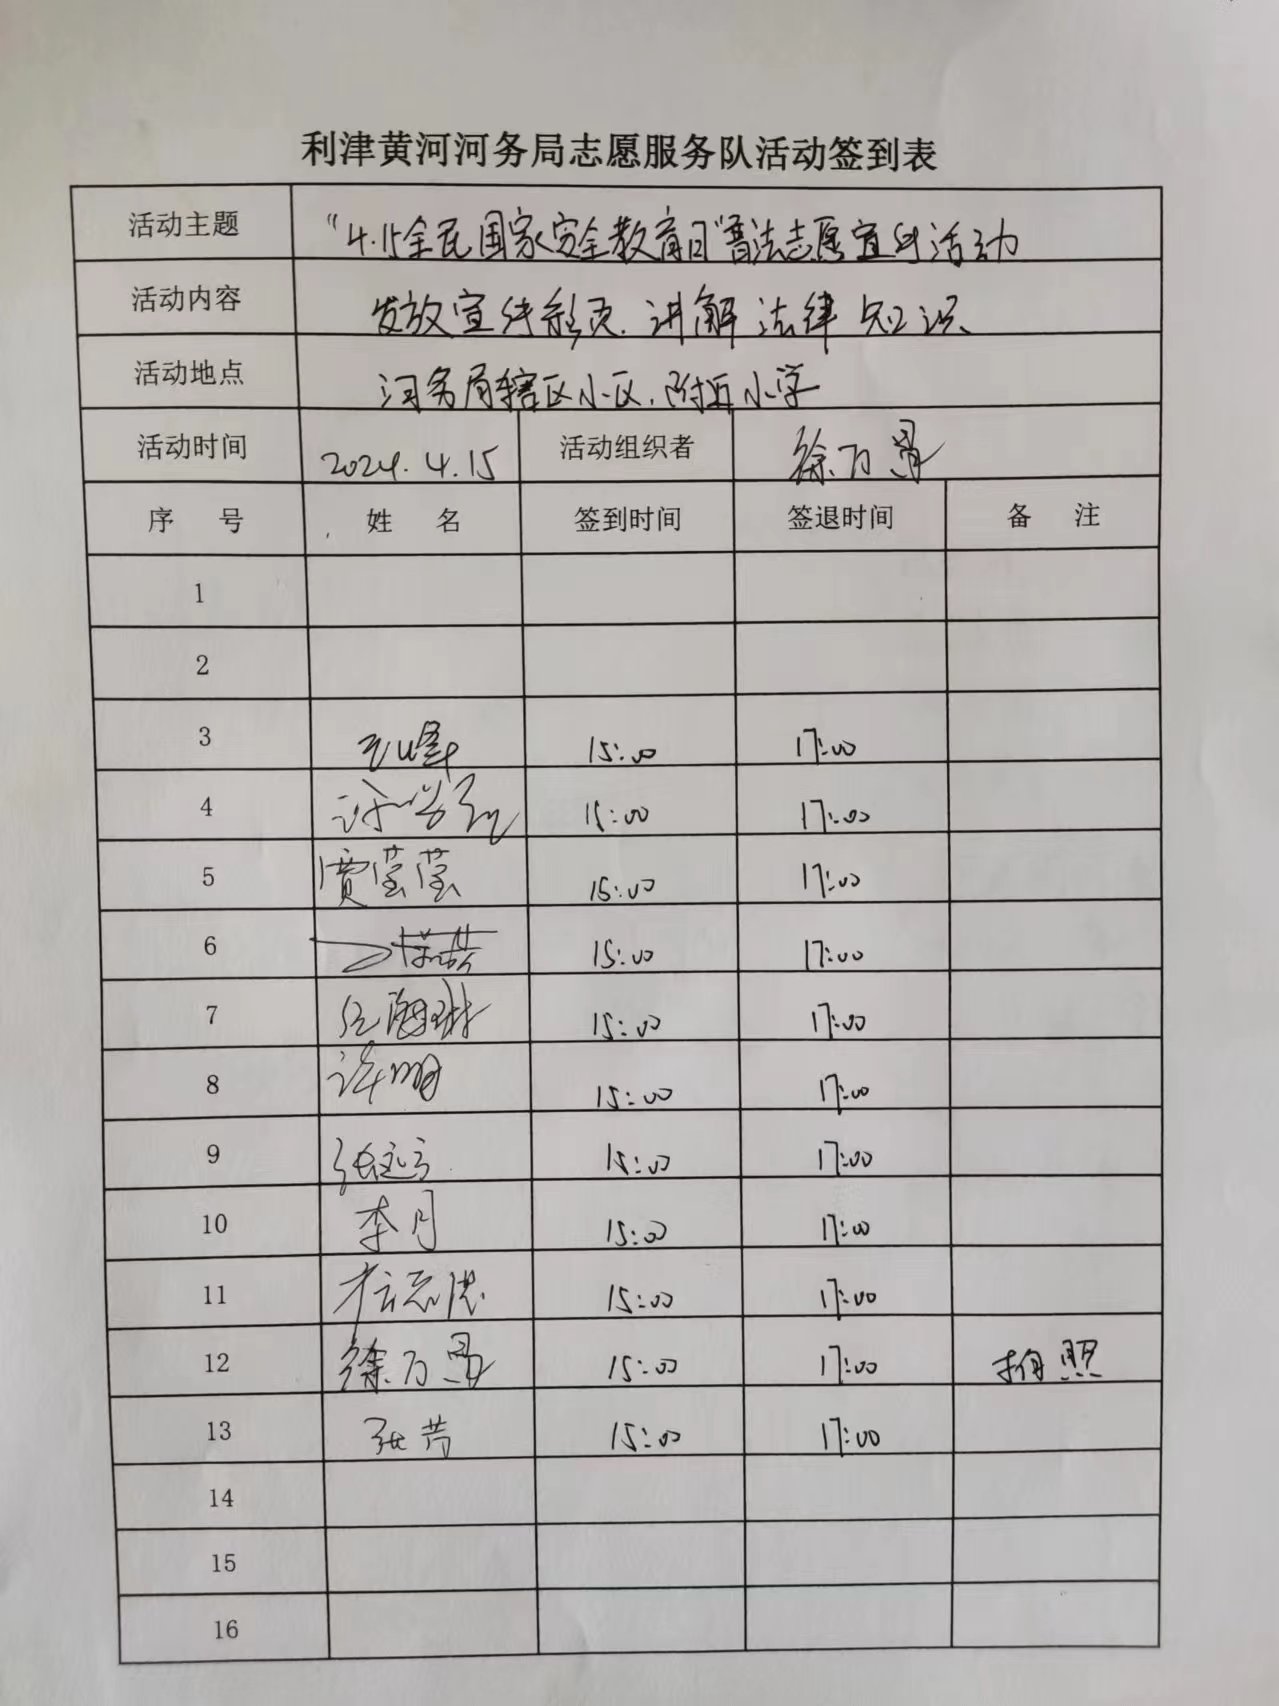 利津黄河河务局志愿服务队活动签到表
活动主题 “4.15全民国家安全教育日”普法志愿宣传活动
活动内容 发放宣传彩页、讲解法律知识
活动地点 河务局辖区小区、附近小学
活动时间 2024.4.15 活动组织者 徐万
序 号 姓 名 签到时间 签退时间 备 注
1
2
3 15:00 17:00
4 15:00 17:00
5 贾莹莹 15:00 17:00
6 15:00 17:00
7 15:00 17:00
8 许明 15:00 17:00
9 15:00 17:00
10 李月 15:00 17:00
11 15:00 17:00
12 徐万 15:00 17:00 拍照
13 张芳 15:00 17:00
14
15
16